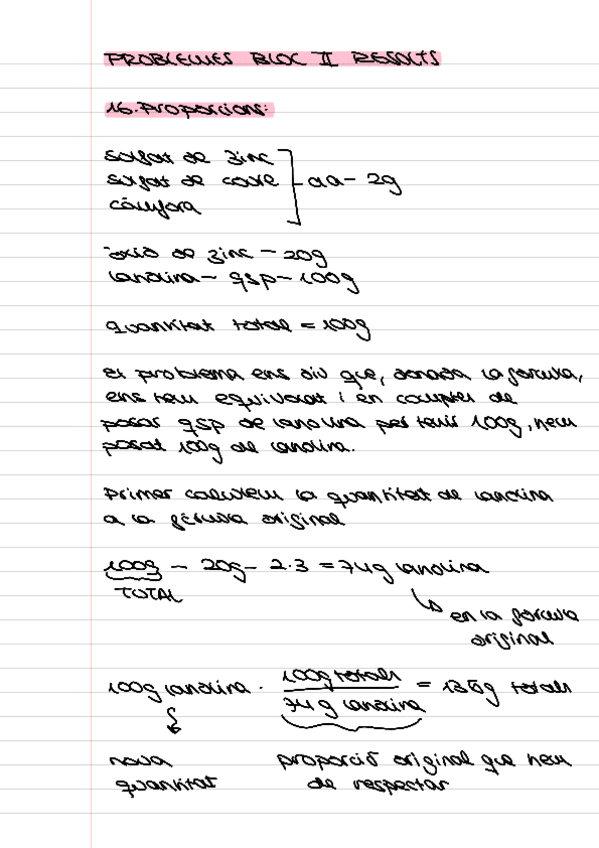 PROBLEMES BLOC II RESOLTS
16. Proporcions:
sulfat de zinc
sulfat de coure
càmfora
aa - 2g
òxid de zinc - 20g
lanolina - qsp - 100g
quantitat total = 100g
el problema ens diu que, donada la fórmula,
ens hem equivocat i en comptes de
posar qsp de lanolina per tenir 100g, hem
posat 100g de lanolina.
primer calculem la quantitat de lanolina
a la fórmula original
100g - 20g - 2·3 = 74g lanolina
TOTAL
en la fórmula
original
100g lanolina · 100g totals / 74 g lanolina = 135g totals
nova
quantitat
proporció original que hem
de respectar